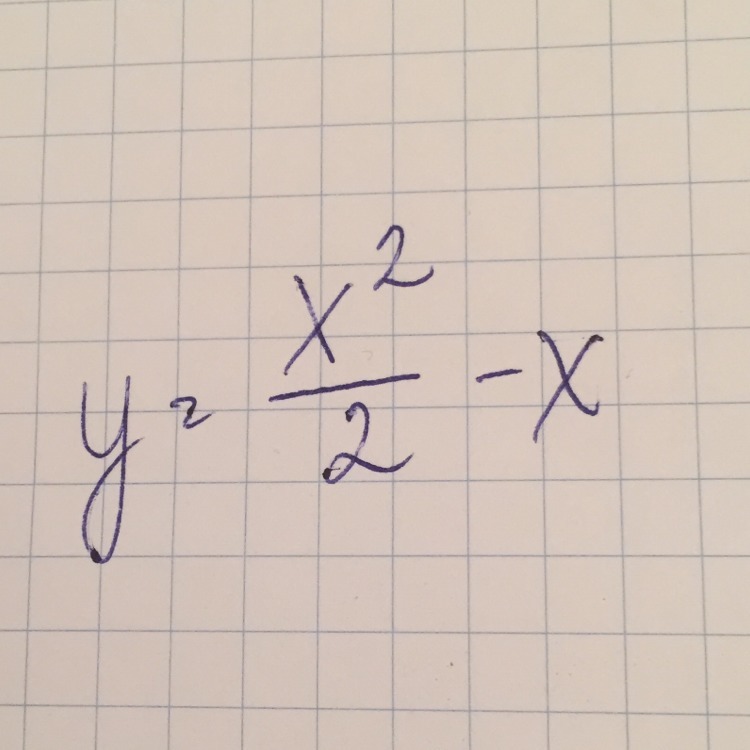 y = x²/2 - x